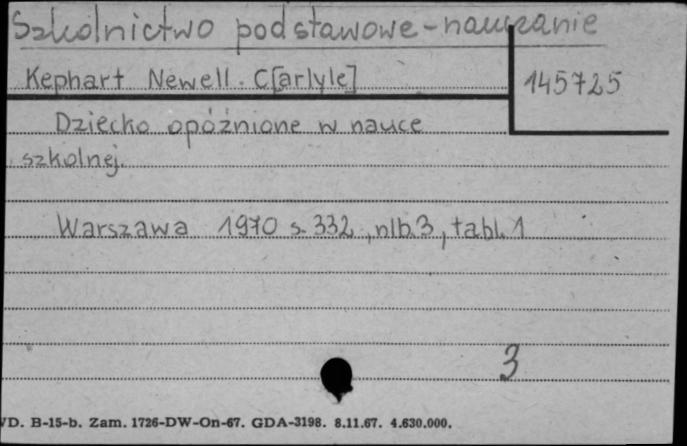 Szkolnictwo podstawowe-nauczanie
Kephart Newell. C[arlyle]
145725
Dziecko opóźnione w nauce
szkolnej.
Warszawa 1970 s. 332, nlb.3, tabl. 1
3
VD. B-15-b. Zam. 1726-DW-On-67. GDA-3198. 8.11.67. 4.630.000.